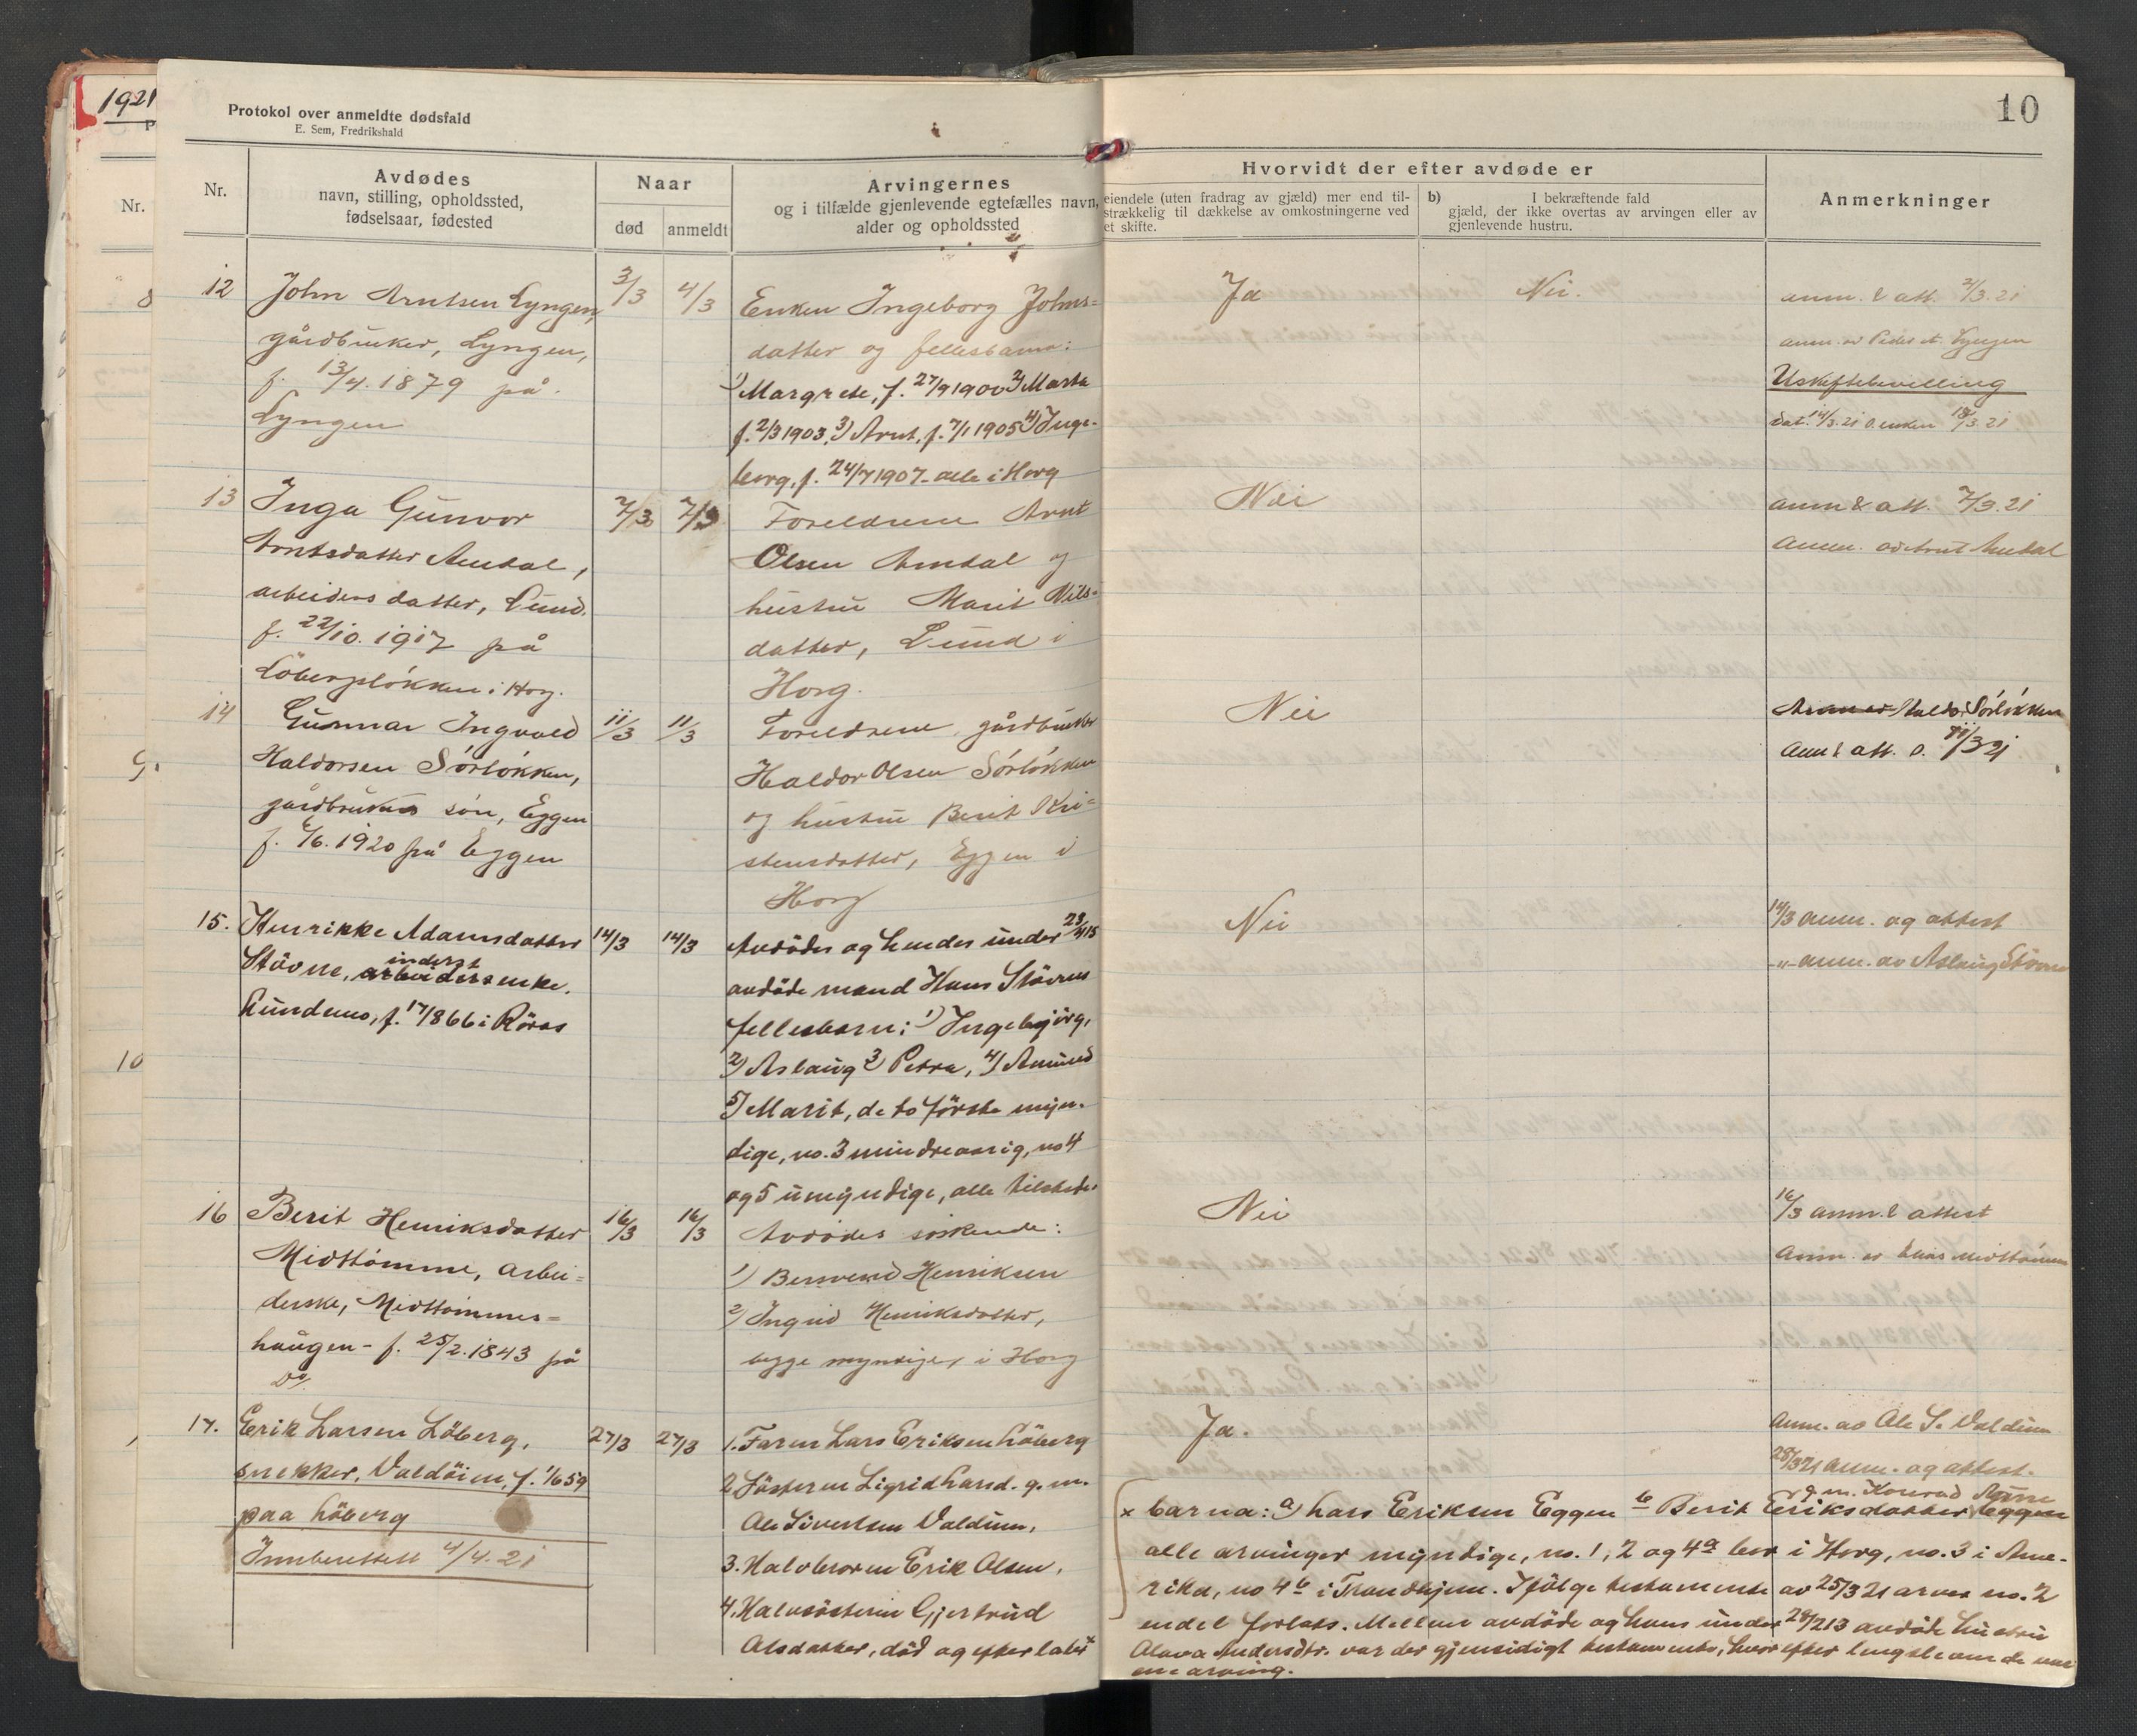 1921
Protokol over anmeldte dødsfald
E. Sem, Fredrikshald
10
Nr.
Nr.
Avdødes
navn, stilling, opholdssted,
fødselsaar, fødested
Naar
død
anmeldt
Arvingernes
og i tilfælde gjenlevende egtefælles navn,
alder og opholdssted
Hvorvidt der efter avdøde er
eiendele (uten fradrag av gjæld) mer end til-
strækkelig til dækkelse av omkostningerne ved
et skifte.
b) I bekræftende fald
gjæld, der ikke overtas av arvingen eller av
gjenlevende hustru.
Anmerkninger
12
John Arntsen Lyngen,
gårdbruker, Lyngen,
f. 13/4.1879 på
Lyngen
3/3
4/3
Enken Ingeborg Johns=
datter og fellesbarn:
1) Margrete, f. 27/9 1900 2) Marta
f. 2/3 1903, 3) Arnt, f. 7/1 1905 4) Inge-
borg, f. 24/7 1907 - alle i Horg
Ja
Nei.
anm. & att. 4/3.21
anm. av Peder A. Lyngen
Uskiftebevilling
dat. 14/3.21 o. enken 18/3.21
13
Inga Gunvor
Arntsdatter Amdal,
arbeiders datter, Lund.
f. 22/10.1917 på
Löbergslökken i Horg.
7/3
7/3
Foreldrene Arnt
Olsen Amdal og
hustru Marit Nils-
datter, Lund i
Horg.
Nei
anm & att. 7/3.21
Anm. av Arnt Amdal
14
Gunnar Ingvald
Haldorsen Sörlökken,
gårdbrukers sön, Eggen
f. /6.1920 på Eggen
11/3
11/3
Foreldrene, gårdbruker
Haldor Olsen Sörlökken
og hustru Berit Kri=
stensdatter, Eggen i
Horg
Nei
Anm av Haldor Sörlökken
Anm & att. o. 11/3 21
15.
Henrikke Adamsdatter
Stövne, inderst arbeidersenke.
Lundemo, f. 17/866 i Röros
14/3
14/3
Avdödes og hendes under 23/415
avdöde mand Hans Stövnes
fellesbarn: 1) Ingebjörg,
2) Aslaug 3) Petra, 4) Amund
5) Marit, de to förste myn-
dige, no. 3 mindreaarig, no 4
og 5 umyndige, alle tilstede.
Nei
14/3 anm. og attest
-"- anm. av Aslaug Stövne
16
Berit Henriksdatter
Midttömme, arbei=
derske, Midttömmes=
haugen - f. 25/2.1843 på
Do/.
16/3
16/3
Avdödes söskende:
1) Bersvend Henriksen
2) Ingrid Henriksdatter,
begge myndige, i Horg
Nei
16/3 anm. & attest
Anm. av Elias Midttömme
17.
Erik Larsen Löberg,
snekker, Valdöien, f. 1/659
paa Löberg
Innberettet 4/4.21
27/3
27/3
1. Faren Lars Eriksen Löberg
2. Sösteren Sigrid Larsd. g. m.
Ole Sivertsen Valdum,
3. Halvbroren Erik Olsen,
4. Halvsösteren Gjertrud
Olsdatter, död og efterlater x
Ja.
Anm. av Ole S. Valdum
28/3 21 anm. og attest.
g. m. Konrad
x barna: a) Lars Eriksen Eggen b Berit Eriksdatter Eggen
alle arvinger myndige, no. 1, 2 og 4a bor i Horg, no. 3 i Ame-
rika, no 4b i Trondhjem. Ifölge testamente av 25/3 21 arver no. 2
endel forlods. Mellem avdöde og hans under 28/213 avdöde hustru
Olava Andersdtr. var der gjensidigt testamente, hvorefter lengstlevende var
ene arving.